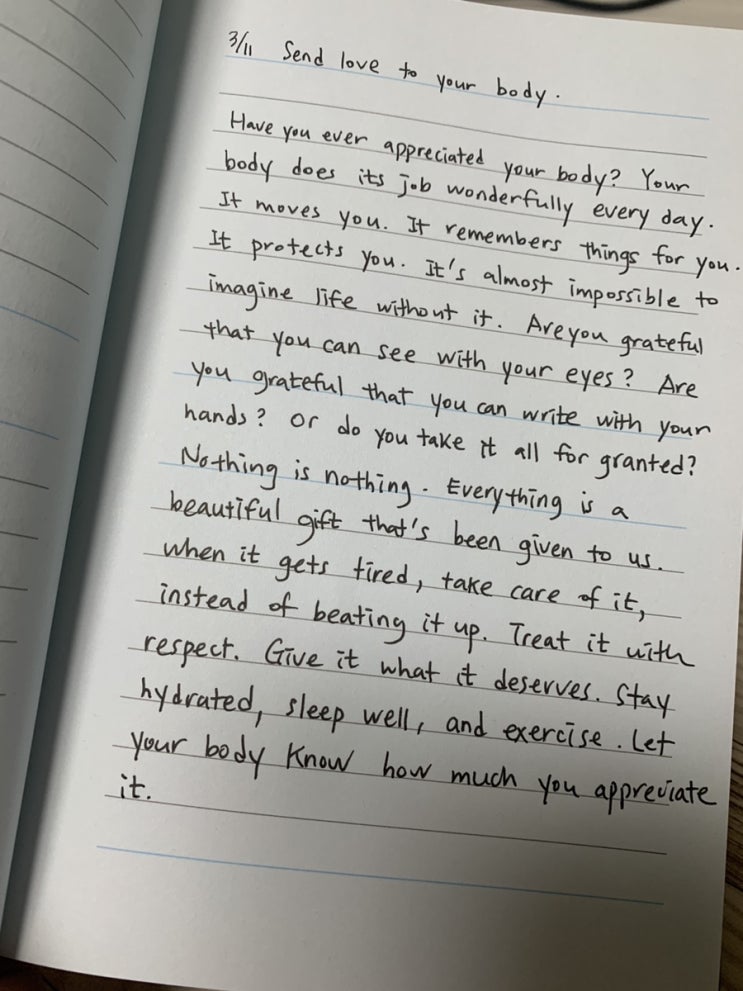 3/11 Send love to your body.
Have you ever appreciated your body? Your
body does its job wonderfully every day.
It moves you. It remembers things for you.
It protects you. It's almost impossible to
imagine life without it. Are you grateful
that you can see with your eyes? Are
you grateful that you can write with your
hands? Or do you take it all for granted?
Nothing is nothing. Everything is a
beautiful gift that's been given to us.
When it gets tired, take care of it,
instead of beating it up. Treat it with
respect. Give it what it deserves. Stay
hydrated, sleep well, and exercise. Let
your body know how much you appreciate
it.